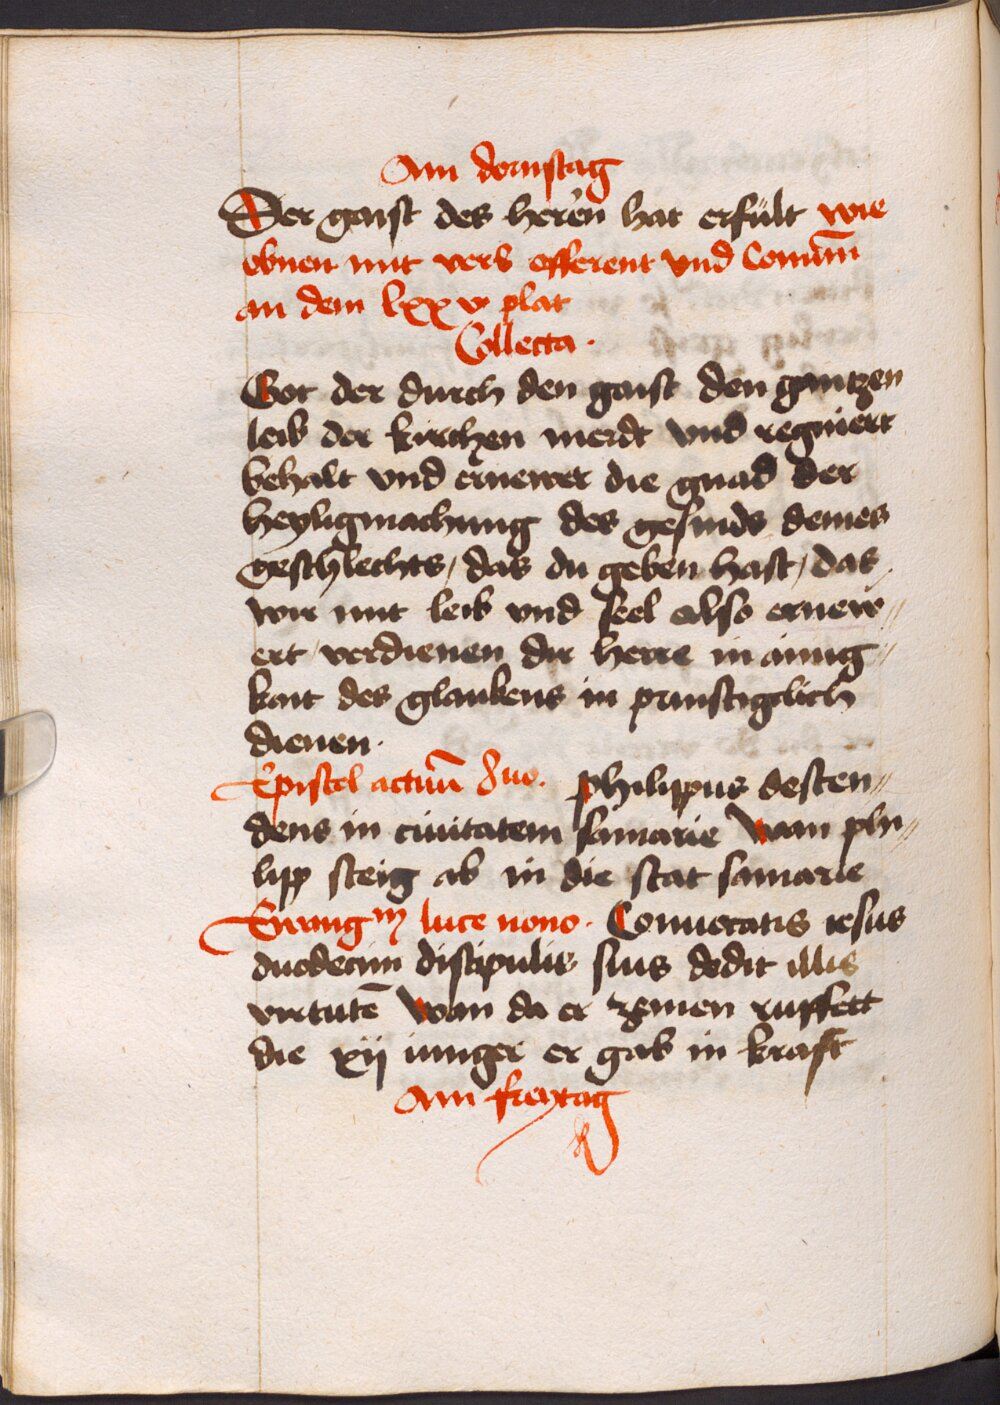 Am dornstag
Der gaist des herren hat erfült wie
obnen mit vers offerent vnd Comum̄
an dem lxxv plat
Collecta ·
Got der durch den gaist den gantzen
leib der kirchen merdt vnd regniert
behalt vnd ernewet die gnad der
heyligmachung des gesinds deines
geschlechts / das du geben hast / das
wir mit leib vnd seel also ernew //
ert verdienen dir herre in ainig //
kait des glaubens in prinstigclich
dienen ·
Epistel actuū 8uo · philippus descen //
dens in ciuitatem samarie wan phi //
lipp steig ab in die stat samarie
Ewangm luce nono · Conuocatis iesus
duodecim discipulis suis dedit illis
virtutē wan da er zemen ruffett
die xij iunger er gab in kraft
Am freytag